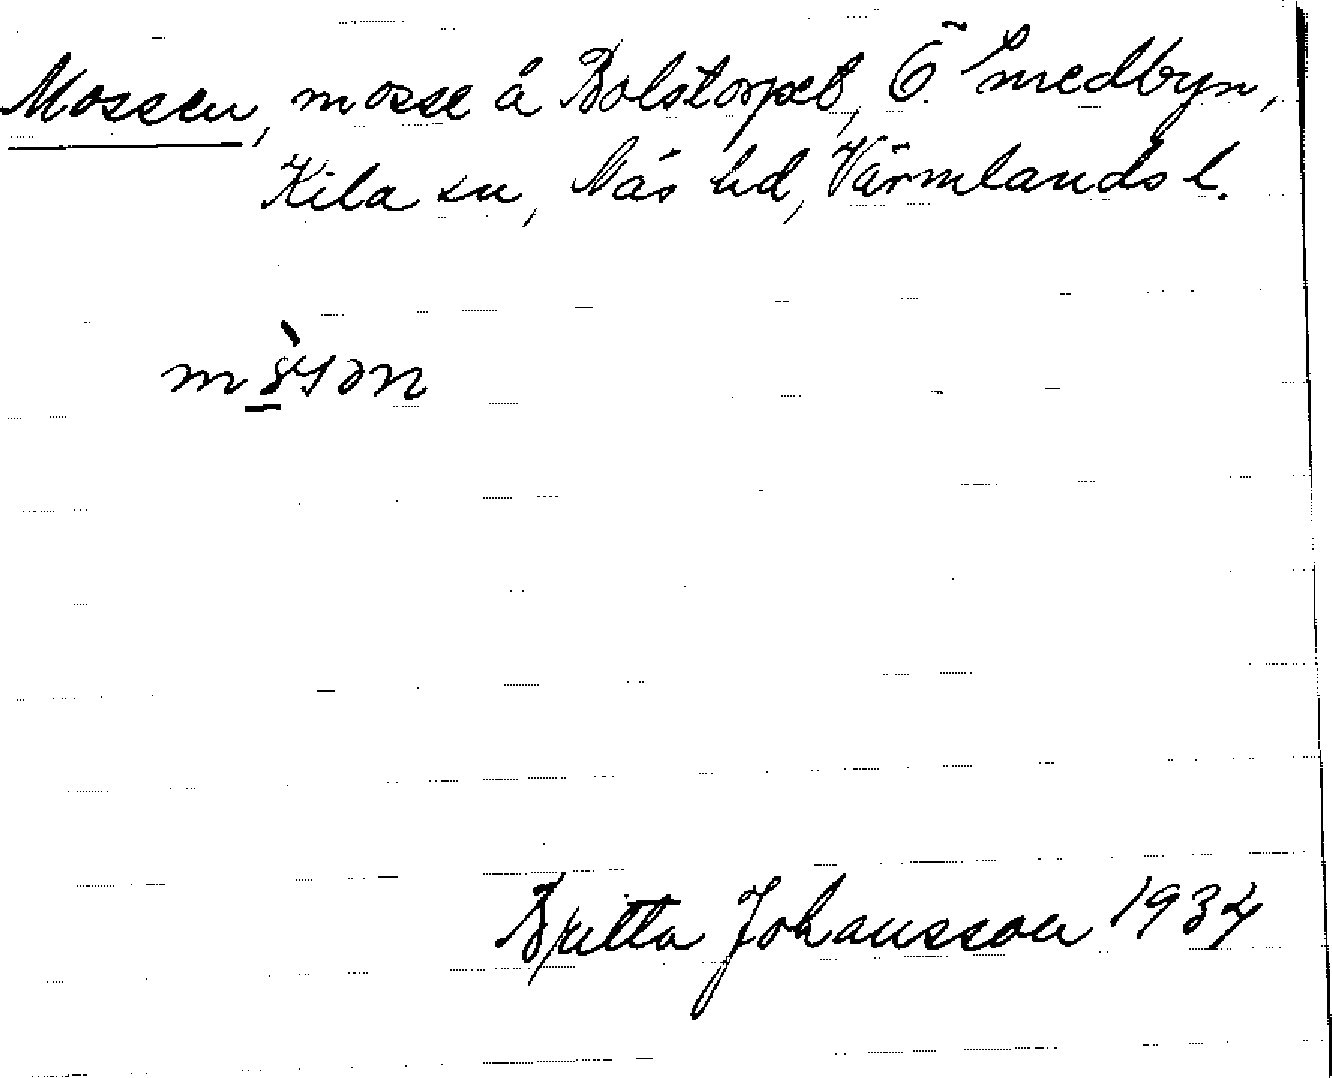 Mossen, mosse å Bolstorpet, Ö. Smedbyn,
Kila sn, Näs hd, Värmlands l.
Britta Johansson 1934